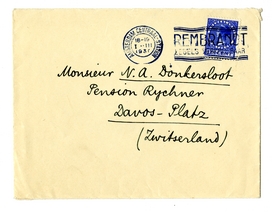 AMSTERDAM CENTRAAL-STATION
18-19
1 III
1931
REMBRANDT
ZEGELS
Monsieur N. A. Donkersloot
Pension Rychner
Davos-Platz
(Zwitserland)